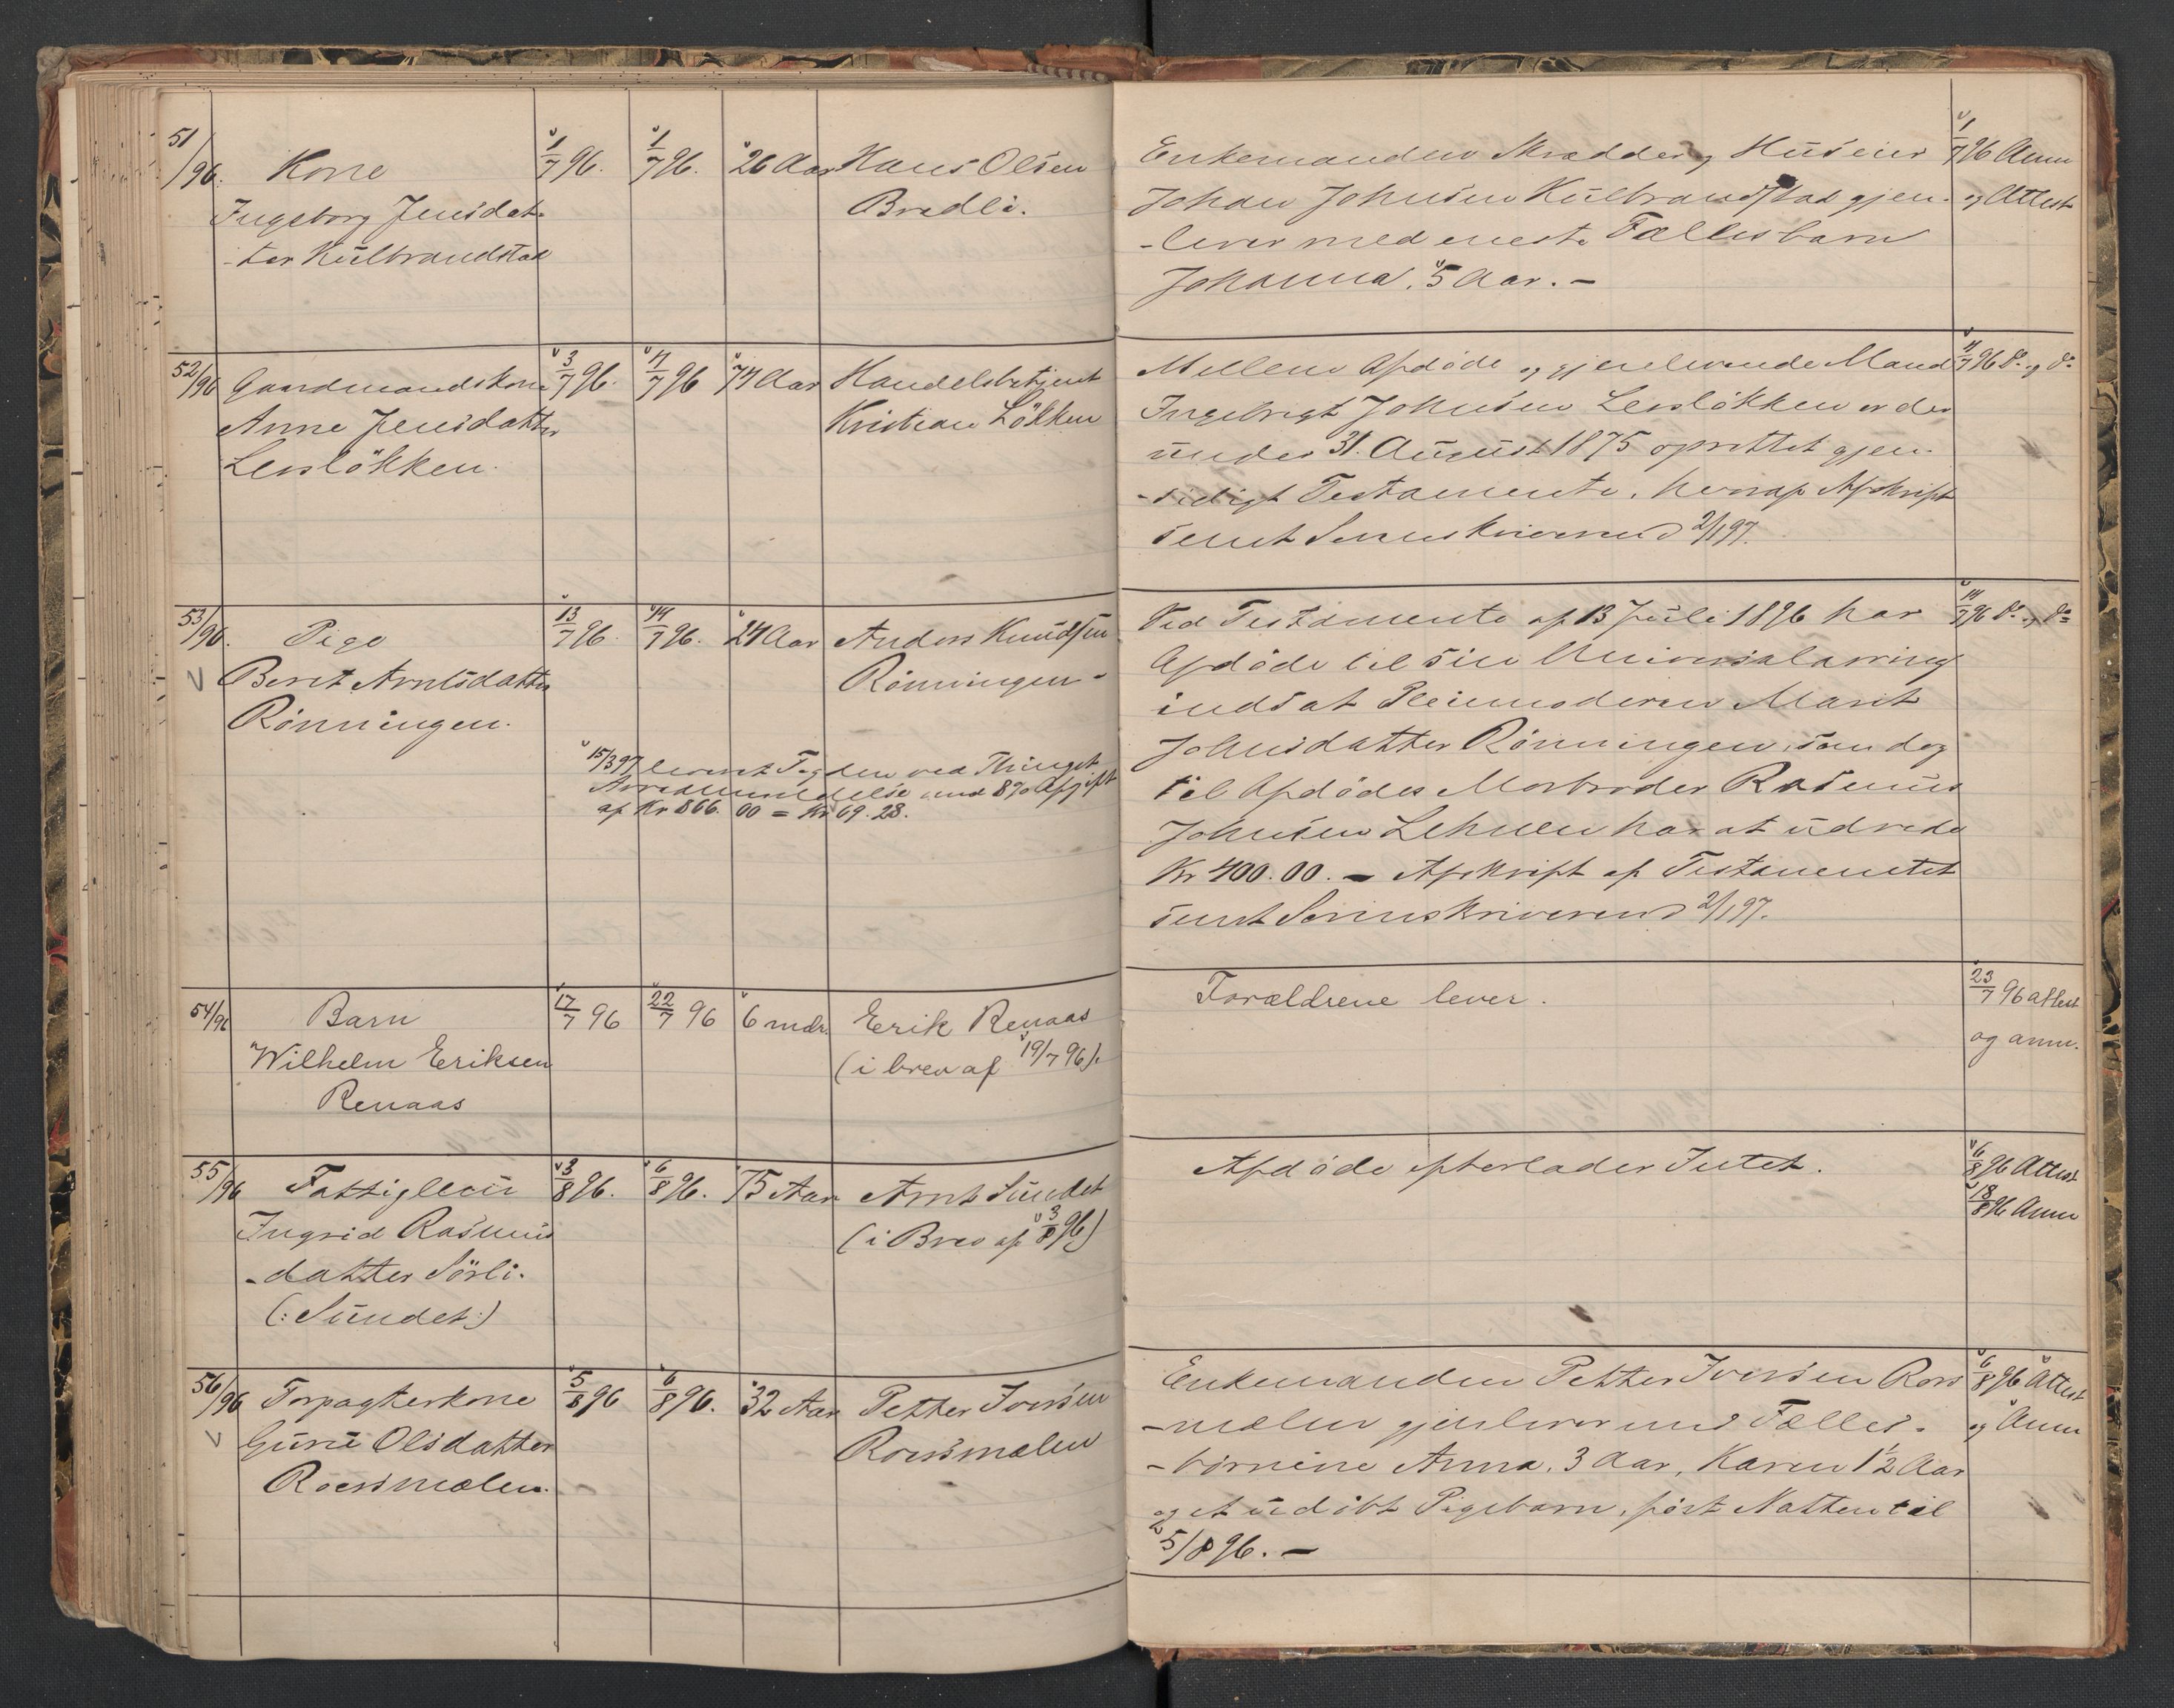 51/96. Kone
Ingeborg Jensdat-
-ter Külbrandstad
1/7 96. 1/7 96. 26 Aar Hans Olsen
Bredli.
Enkemanden Skrædder og Huseier
Johan Johnsen Külbrandstad gjen-
-lever med eneste Fællesbarn
Johanna, 5 Aar. –
1/7 96 Ann
og Attest
52/96 Gaardmandskone
Anne Jensdatter
Lersløkken.
3/7 96. 4/7 96 74 Aar Handelsbetjent
Kristian Løkken
Mellem Afdøde og gjenlevende Mand
Ingebrigt Johnsen Lersløkken er der
under 31. August 1875 oprettet gjen-
-sidigt Testamente, hvoraf Afskrift
sendt Sorenskriveren d 2/1 97.
4/7 96 do. og do.
53/96. Pige
Berit Arntsdatter
Rønningen.
13/7 96. 14/7 96. 24 Aar Anders Knudsen
Rønningen.
15/3 97 leveret Fogden ved Thinget
Arveanmeldelse med 8% Afgift
af Kr 866.00 = Kr 69.28.
Ved Testamente af 13 Juli 1896 har
Afdøde til sin Universalarving
indsat Pleiemoderen Marit
Johnsdatter Rønningen, som dog
til Afdødes Morbroder Rasmus
Johnsen Lehnen har at udrede
Kr 400.00. – Afskrift af Testamentet
sendt Sorenskriveren d 2/1 97.
14/7 96 do. og do.
54/96 Barn
Wilhelm Eriksen
Renaas
17/7 96 22/7 96 6 mdr. Erik Renaas
(i brev af 19/7 96).
Forældrene lever.
23/7 96 attest
og ann.
55/96 Fattiglem
Ingrid Rasmus
-datter Sørli.
(: Sundet :)
3/8 96. 6/8 96. 75 Aar Arnt Sundet
(i Brev af 3/8 96)
Afdøde efterlader Intet.
6/8 96 Attest
18/8 96 Ann
56/96 Forpagterkone
Guru Olsdatter
Roessmælen.
5/8 96 6/8 96. 32 Aar Petter Iversen
Roessmælen
Enkemanden Petter Iversen Roes
-mælen gjenlever med Fælles-
-børnene Anna, 3 Aar, Karen 1½ Aar
og et udøbt Pigebarn, født Natten til
5/8 96. –
6/8 96 Attest
og Ann